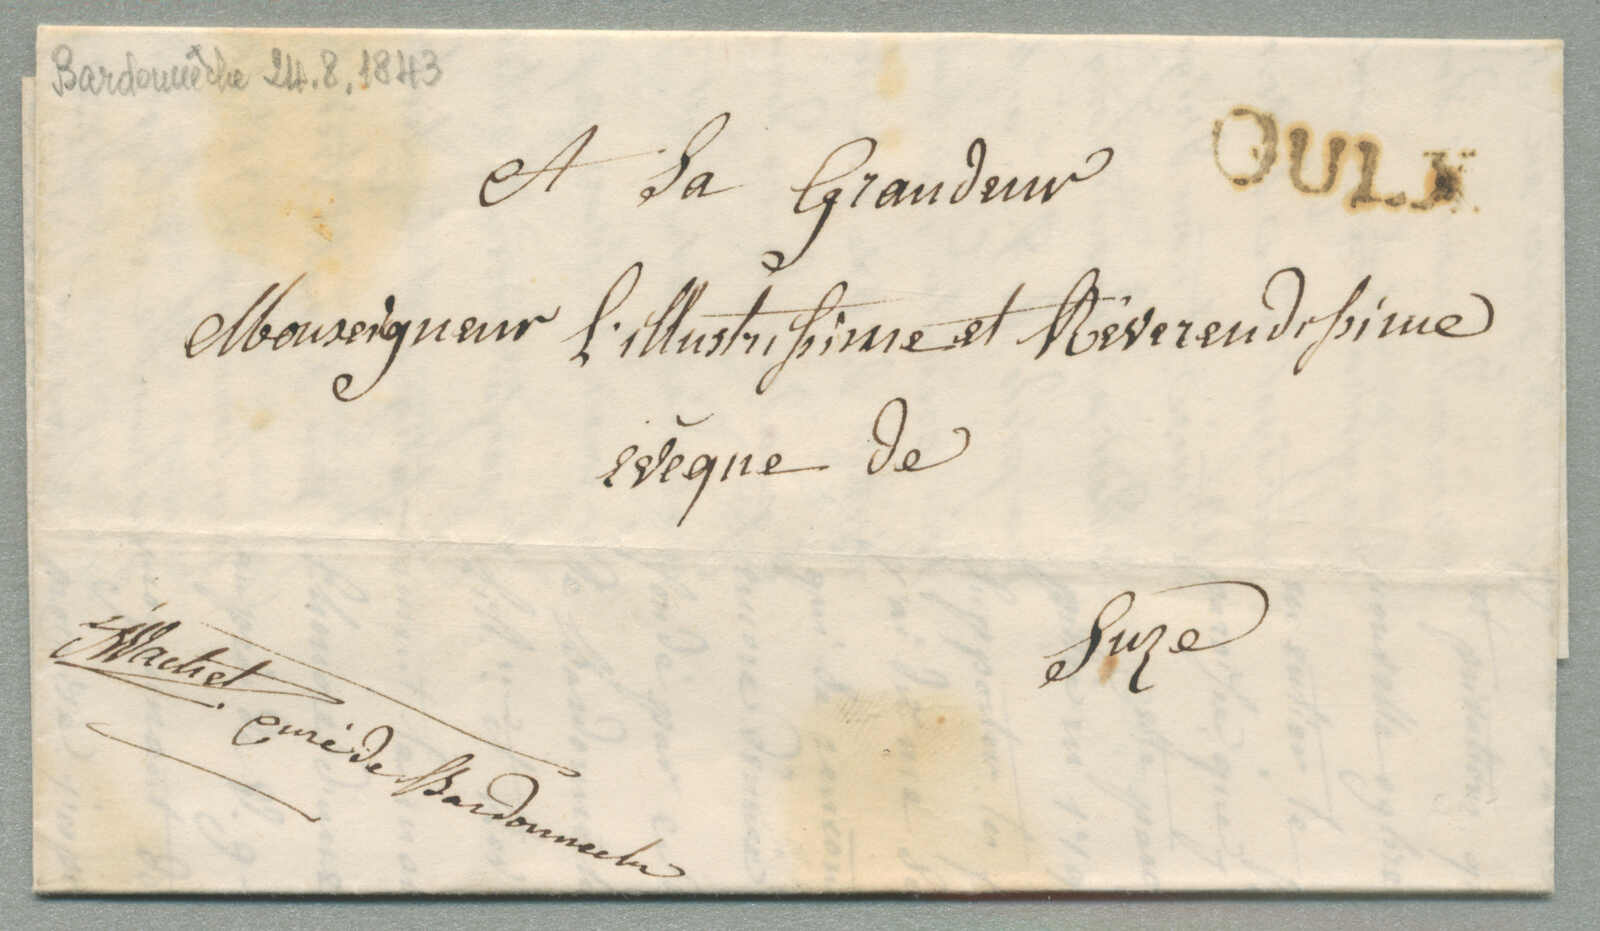 Bardonnêche 24.8.1843
OULX
A Sa Grandeur
Monseigneur L'illustrissime et Réverendissime
evèque de
Suze
Vachet
curé de Bardonneche